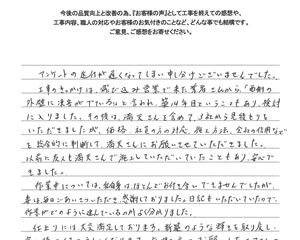 今後の品質向上と改善の為、『お客様の声』として工事を終えての感想や、
工事内容、職人の対応やお客様のお気付きのことなど、どんな事でも結構です。
ご意見、ご感想をお寄せください。
アンケートの送付が遅くなってしまい申し訳ございませんでした。
工事のきっかけは、飛び込み営業で来た業者さんから、「西側の
外壁に浮きがでている」と言われ、築14年目ということもあり、検討
に入りました。その後は、満天さんを含めて、3社から見積もりを
いただきましたが、価格、社員の方の対応、施工方法、会社の信用など
を総合的に判断して、満天さんにお願いさせていただきました。
以前に友人も満天さんで施工していただいていたこともあり、安心で
きました。
作業中については、私自身はほとんどお付き合いできませんでしたが、
妻は毎日ごあいさついただき、感謝しておりました。日誌もいただいていたので、
作業がどのように進んでいるのかよく分かりました。
仕上りには大変満足しております。新築のような輝きを取り戻し、